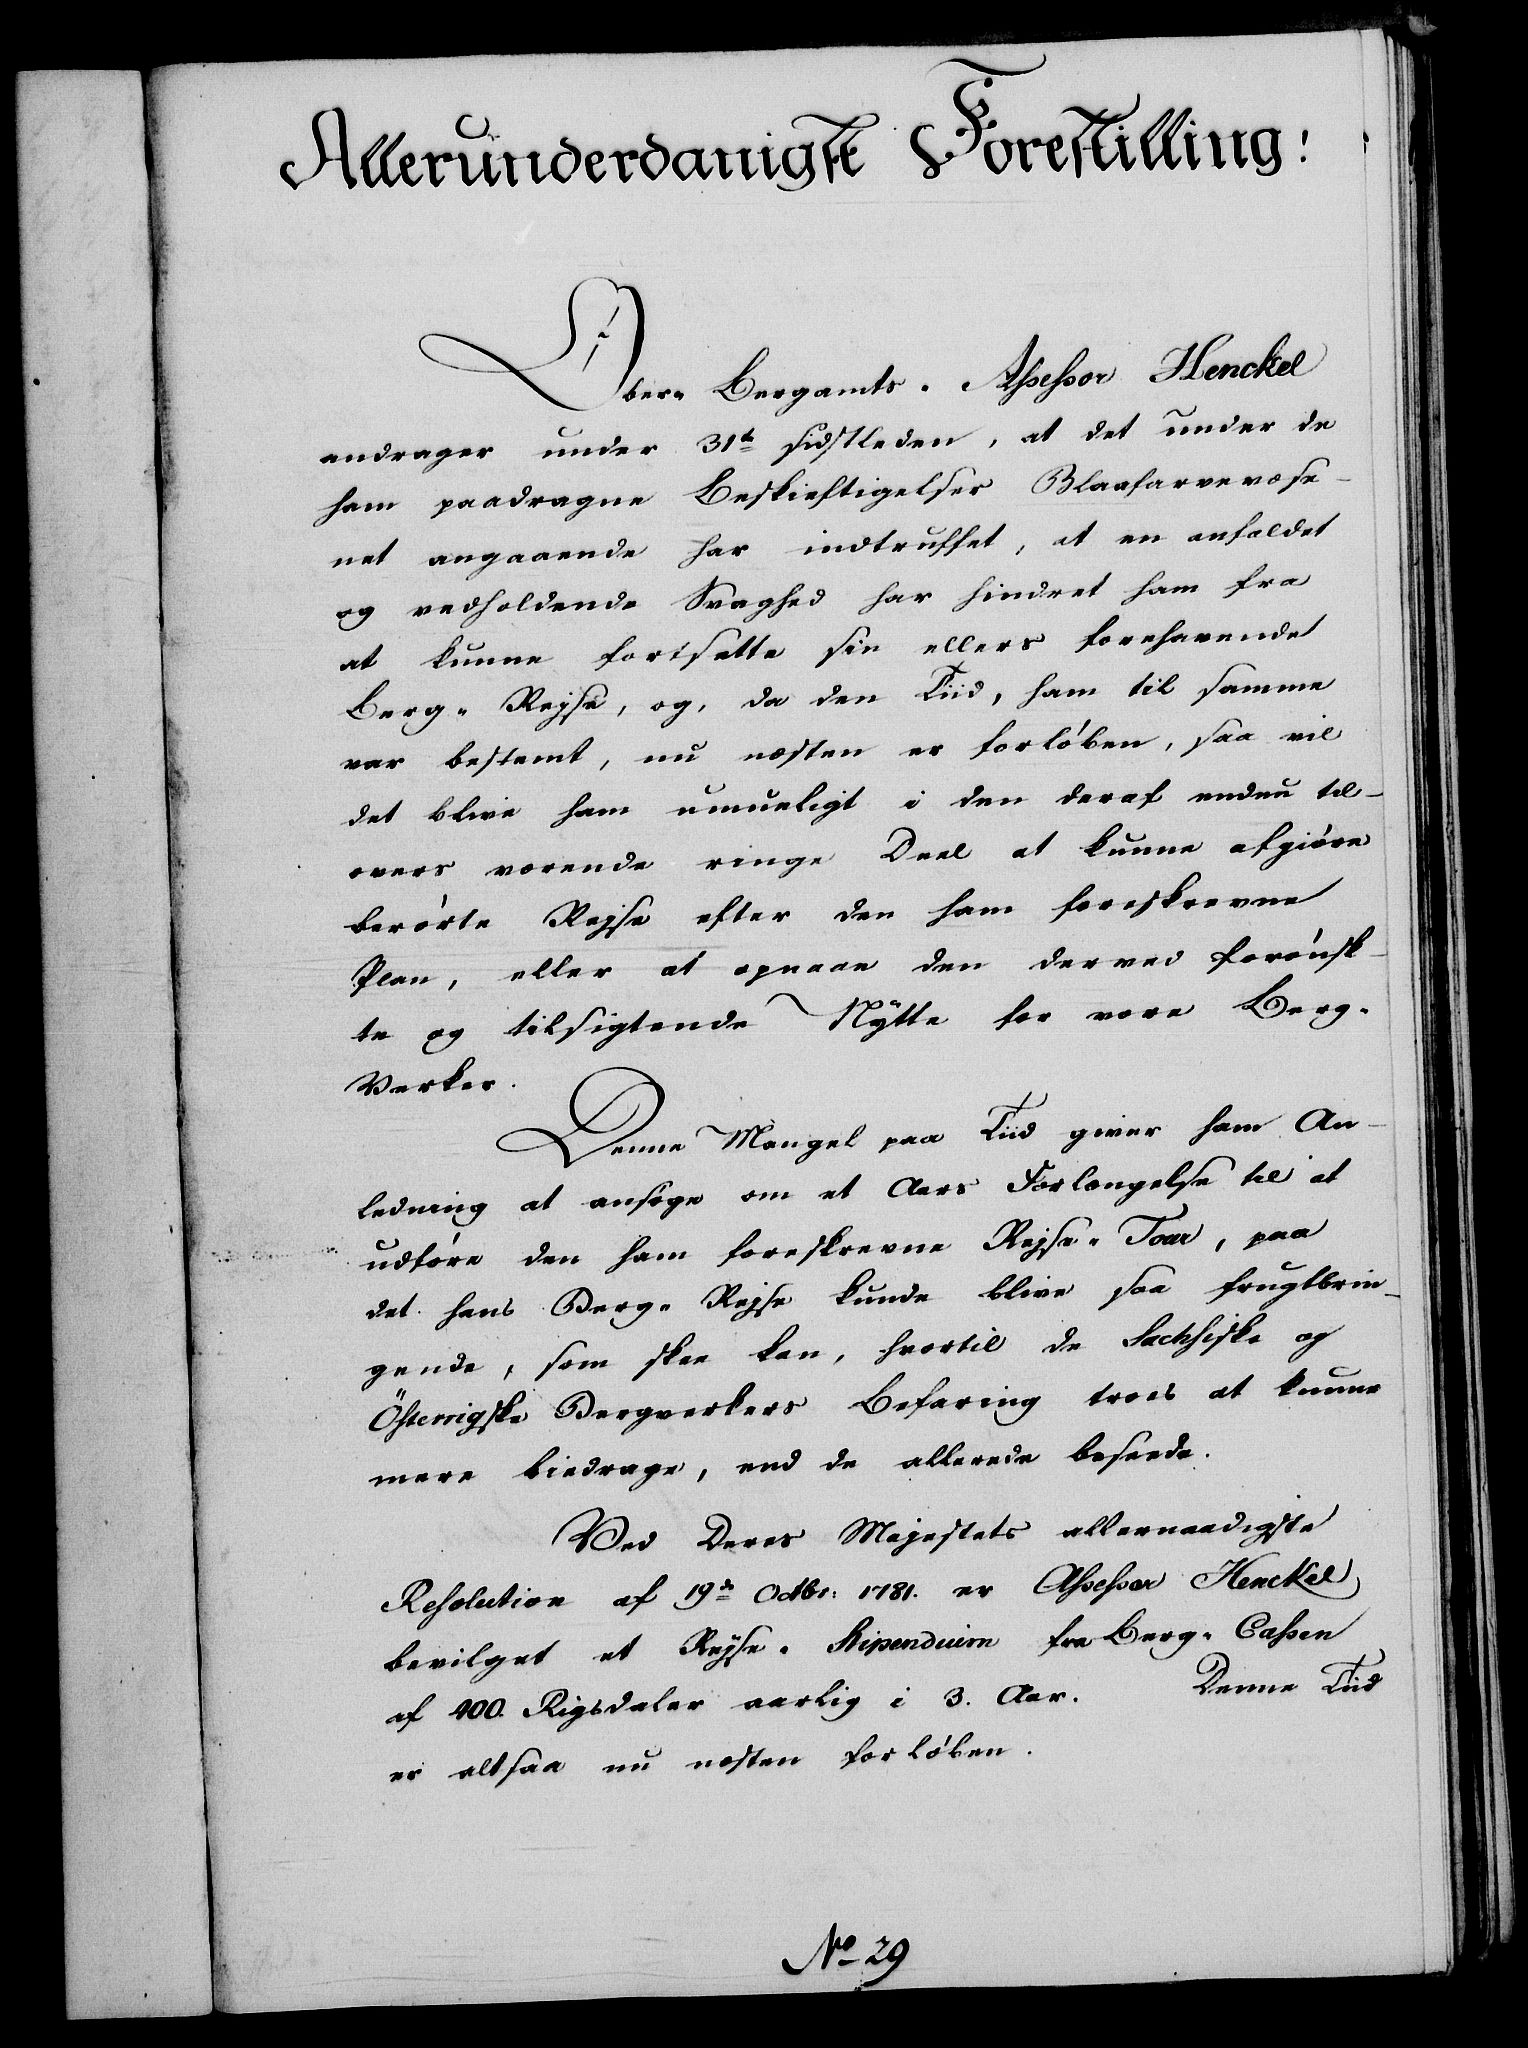 Allerunderdanigste Forestilling:
Ober- Bergamts- Assessor Henckel
andrager under 31te sidstleden, at det under de
ham paadragne Beskieftigelser Blaafarvevæse-
net angaaende har indtruffet, at en anfaldet
og vedholdende Svaghed har hindret ham fra
at kunne fortsætte sin ellers forehavende
Berg- Rejse, og, da den Tiid, ham til samme
var bestemt, nu næsten er forløben, saa vil
det blive ham umueligt i den deraf endnu til-
overs værende ringe Deel at kunne afgiøre
berørte Rejse efter den ham foreskrevne
Plan, eller at opnaae den derved forønsk-
te og tilsigtende Nÿtte for vore Berg-
Verker.
Denne Mangel paa Tiid giver ham An-
ledning at ansøge om et Aars Forlængelse til at
udføre den ham foreskrevne Rejse- Tour, paa
det hans Berg- Rejse kunde blive saa frugtbrin-
gende, som skee kan, hvortil de Sachsiske og
Österrigske Bergverkers Befaring troes at kunne
mere biedrage, end de allerede beseede.
Ved Deres Majestets allernaadigste
Resolution af 19de Octbr: 1781. er Assessor Henckel
bevilget et Rejse- Stipendium fra Berg- Cassen
af 400. Rigsdaler aarlig i 3. Aar. Denne Tiid
er altsaa nu næsten forløben.
No 29